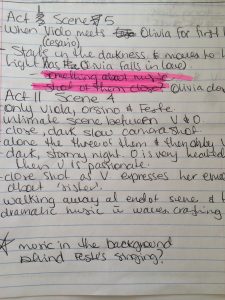 Act 1 Scene 5
When Viola meets Olivia for first
(Cesario)
- Starts in the darkness & moves to
light as Olivia falls in love)
something about music
shot of them close? Olivia
Act II Scene 4
Only Viola, Orsino & Feste
intimate scene between V & O
close, dark slow camera shot.
alone the three of them & then only
dark, stormy night. O is very heated
then V is passionate.
- close shot as V expresses her
about 'sister'
walking away at end of scene &
dramatic music waves crashing
music in the background
behind Feste's singing?